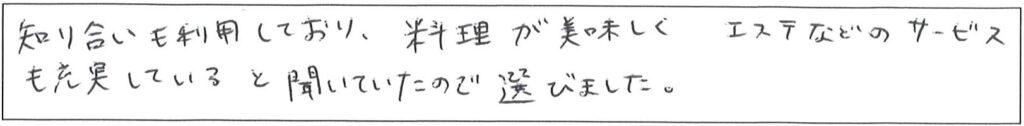 知り合いも利用しており、料理が美味しく エステなどのサービス
も充実していると聞いていたので選びました。